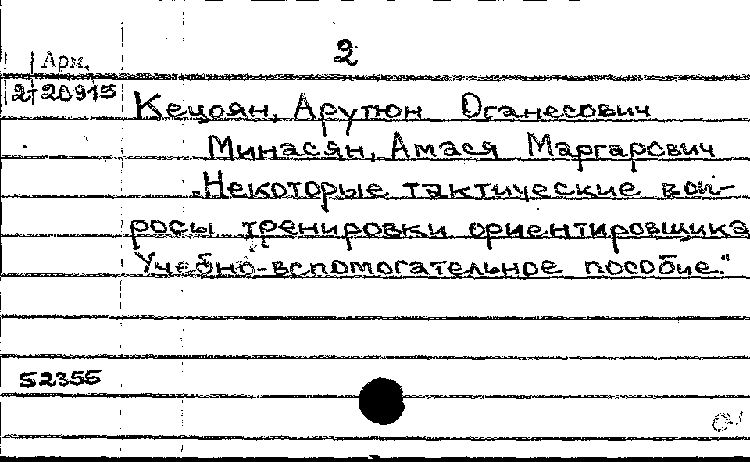 2
Арм.
2-20915
Кецоян, Арутюн Оганесович
Минасян, Амася Маргарович
„Некоторые тактические воп-
росы тренировки ориентировщика
Учебно-вспомогательное пособие."
52355